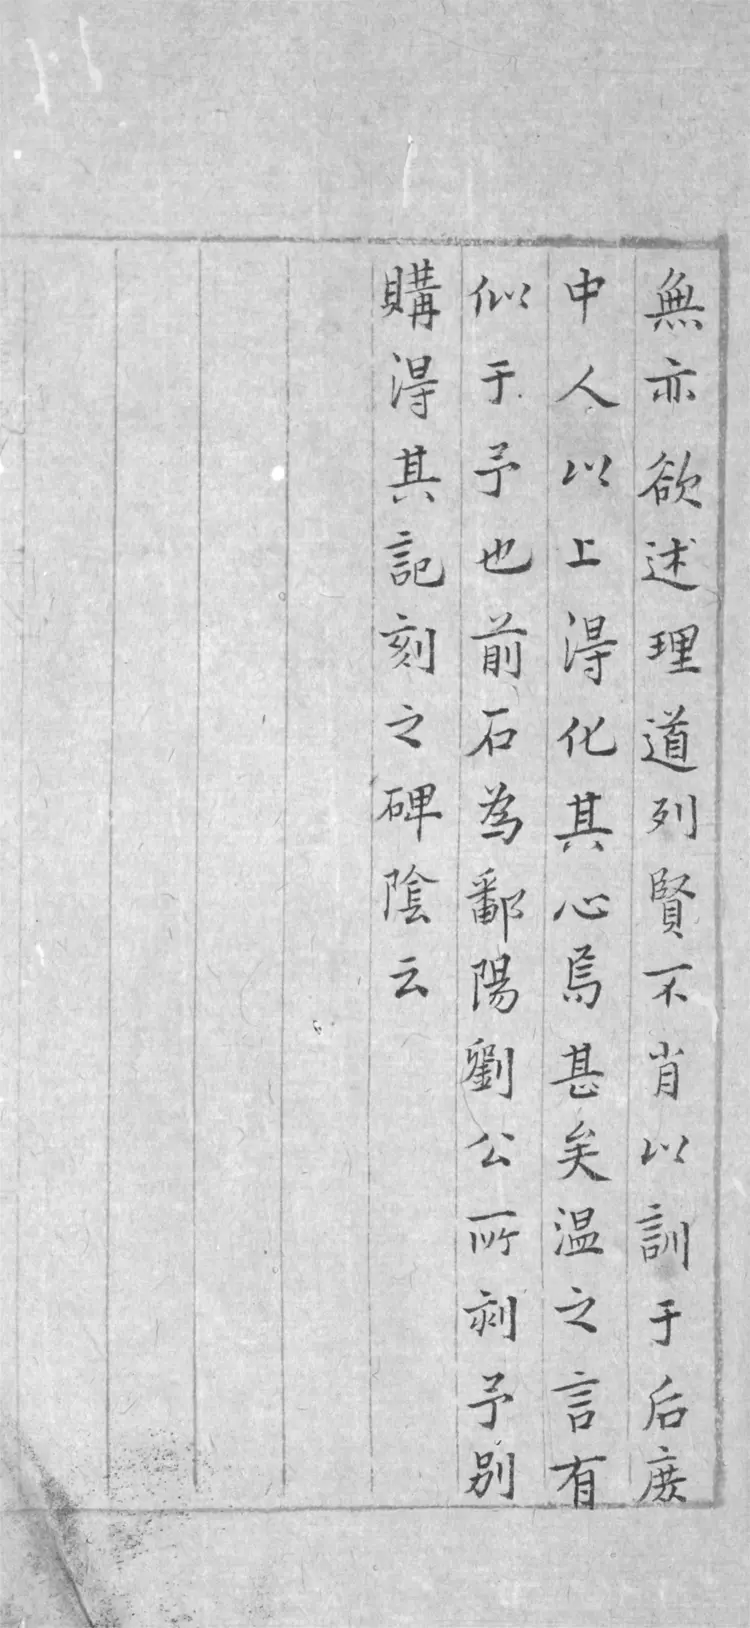 無亦欲述理道列賢不肖以訓于后庻
中人以上淂化其心焉甚矣温之言有
似于予也前石為鄱陽劉公所剥予别
購淂其記刻之碑陰云